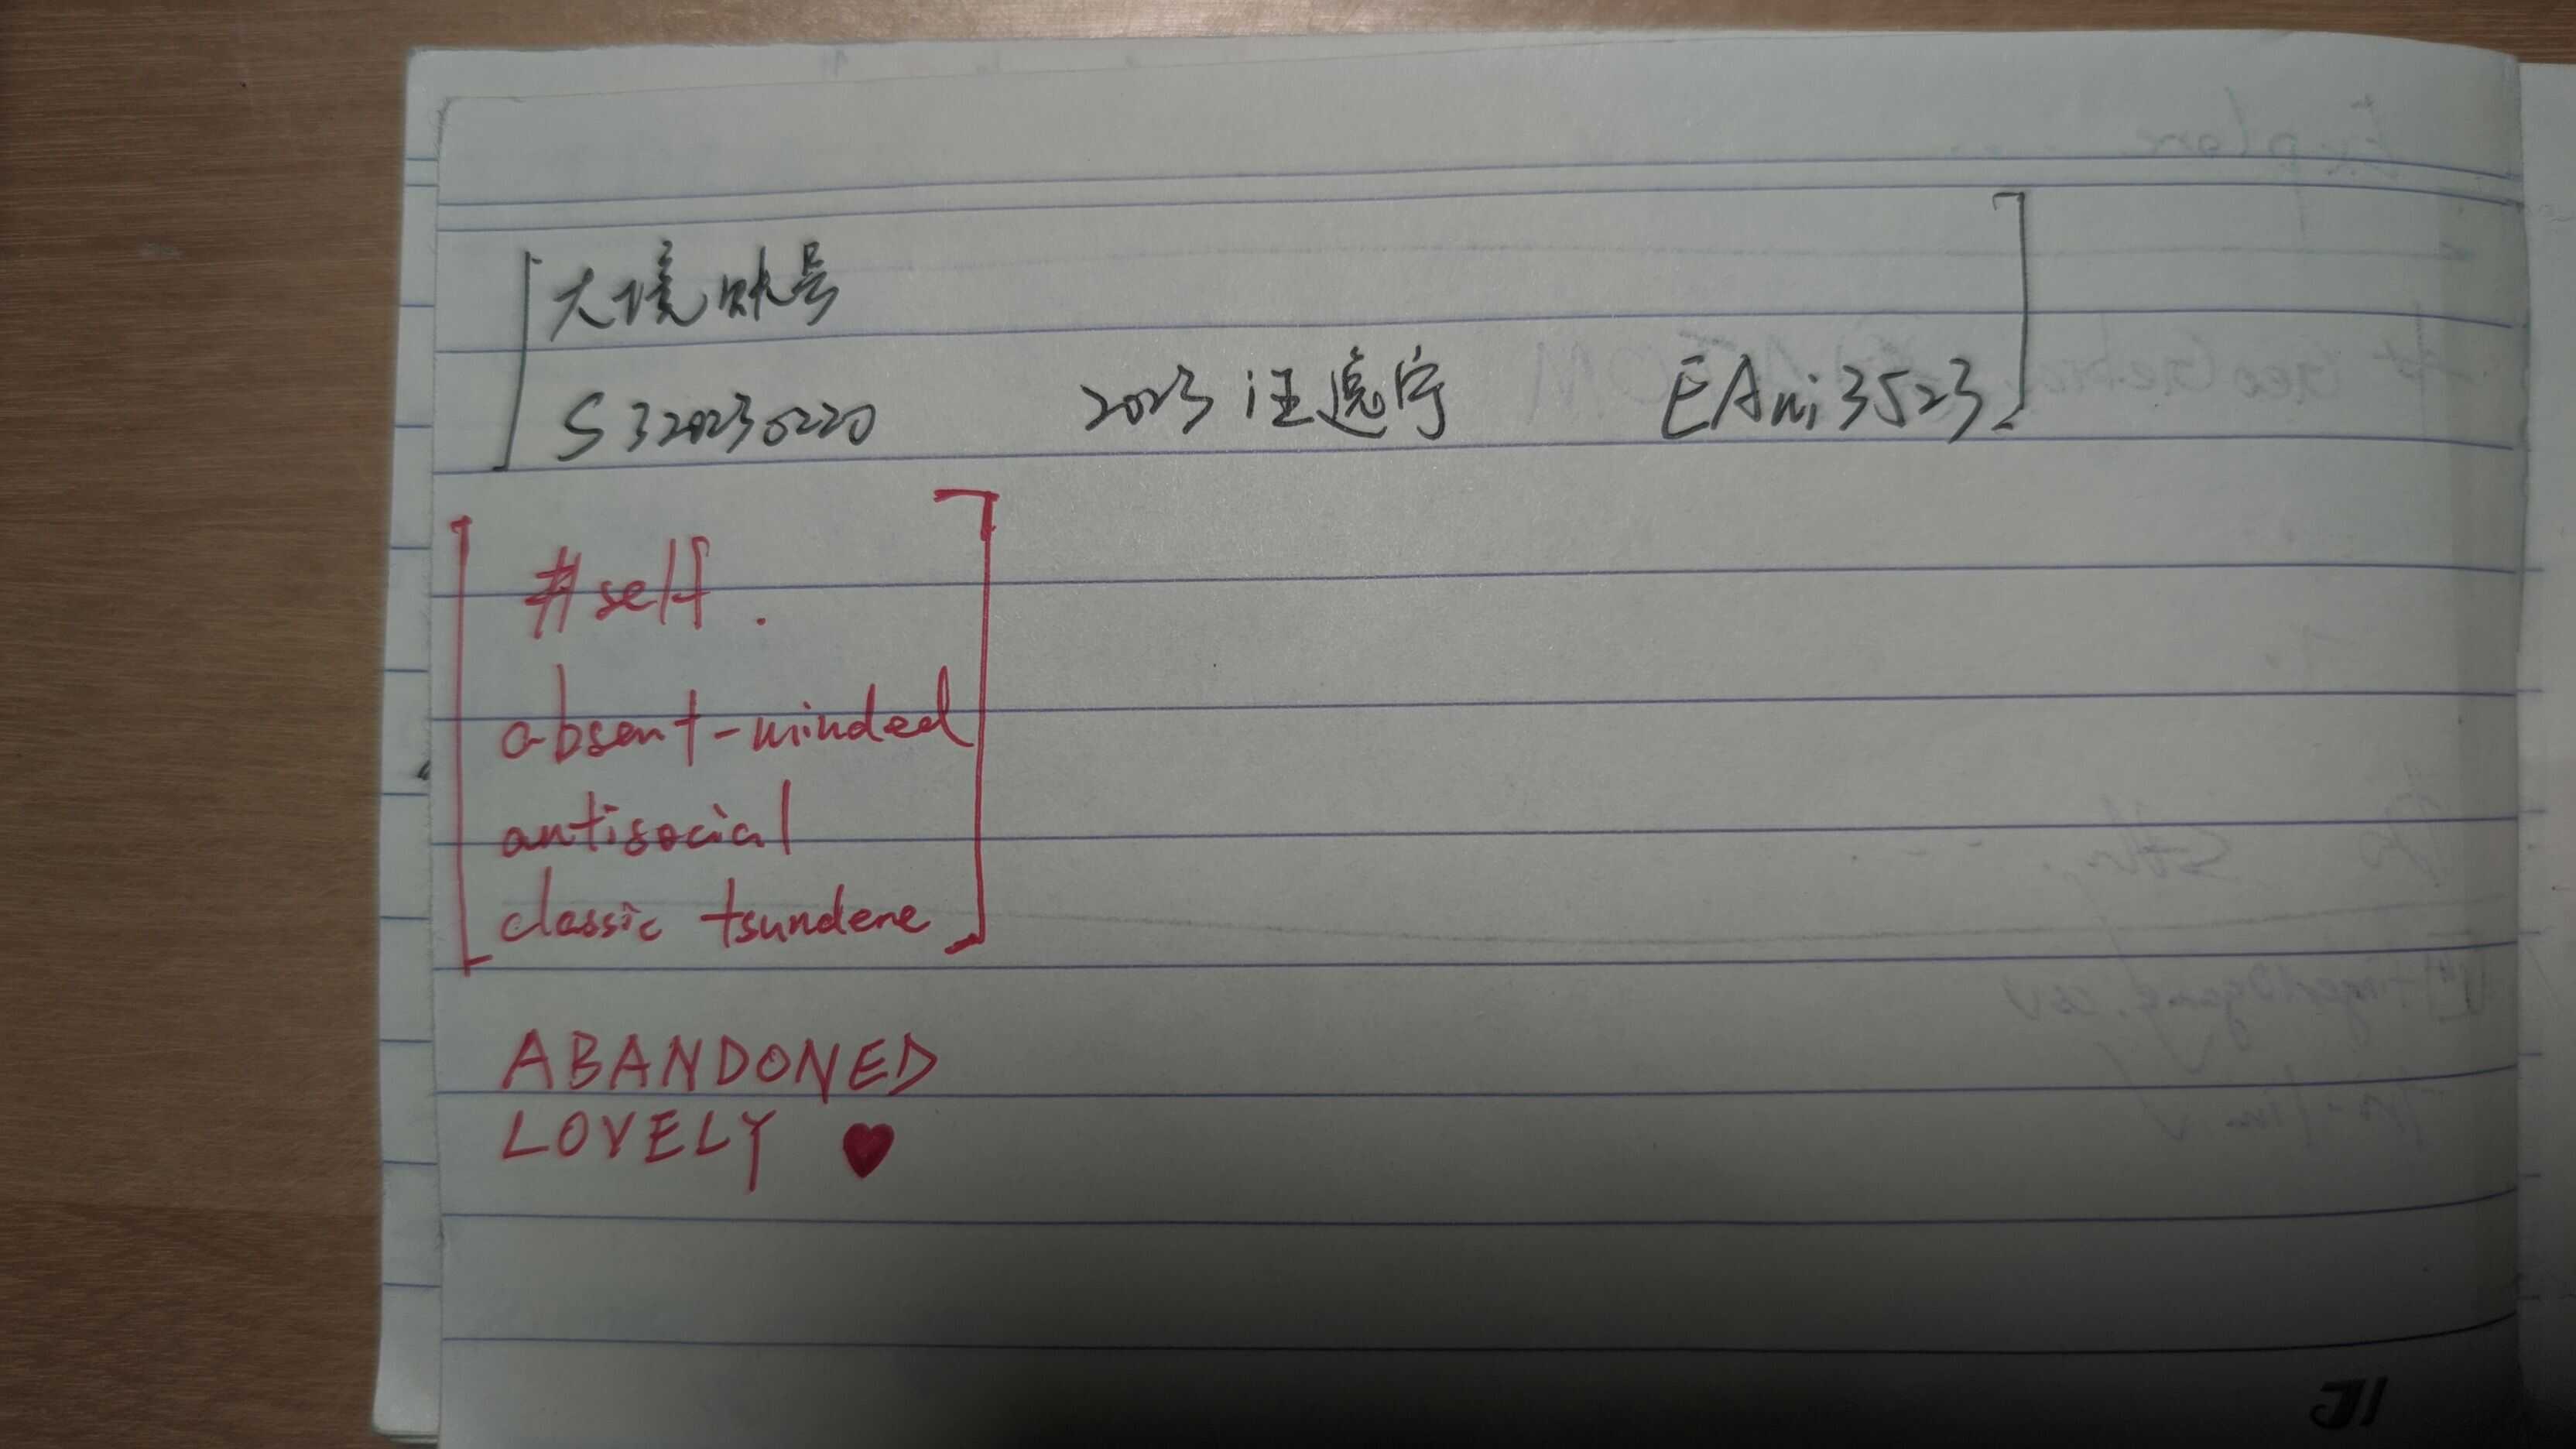 大境账号
S320230220 2023汪逸宁 EAni3523
#self.
absent-minded
antisocial
classic tsundere
ABANDONED
LOVELY ♥